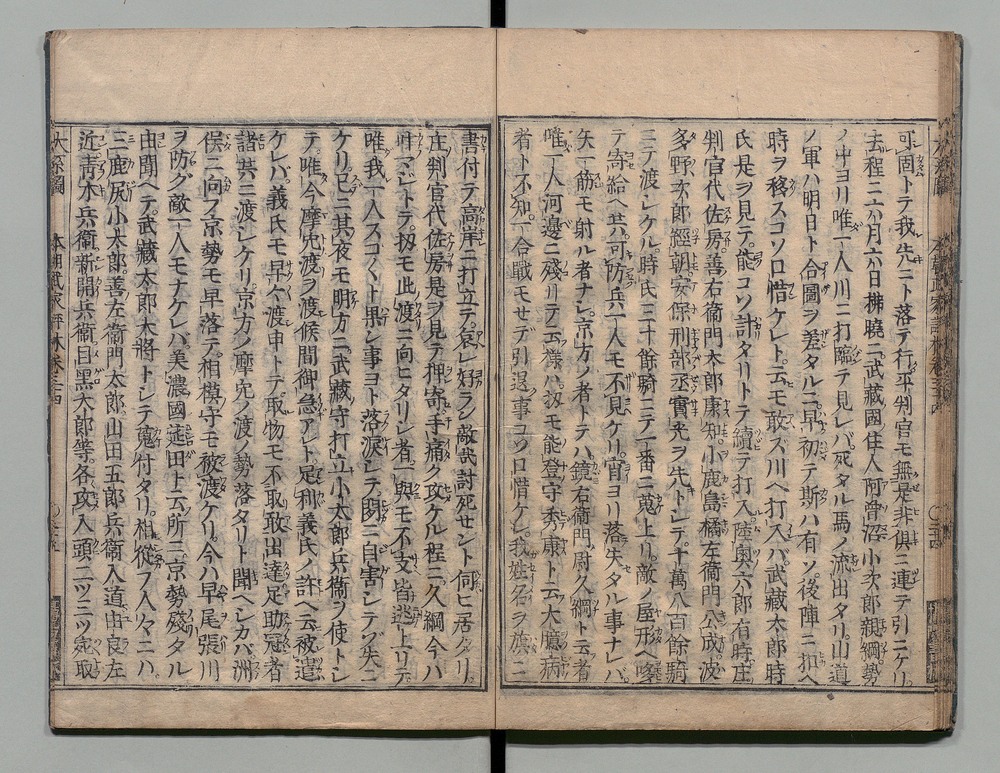 可固トテ我先ニト落テ行平判官モ無是非倶ニ連テ引ニケリ
去程ニ六月六日拂曉ニ武藏國住人阿曾沼小次郎親綱勢
ノ中ヨリ唯一人川ニ打臨テ見レバ死タル馬ノ流出タリ山道
ノ軍ハ明日ト合圖ヲ差タルニ早初テ斯ハ有ソ後陣ニ扣ヘ
時ヲ移スコソ口惜ケレト云モ敢ズ川ヘ打入バ武藏太郎時
氏是ヲ見テ能コソ計タリトテ續テ打入陸奥六郎有時庄
判官代佐房善右衞門太郎康知小鹿島橘左衞門公成波
多野次郎經朝安保刑部丞實光ヲ先トシテ十萬八百餘騎
ニテ渡シケル時氏三十餘騎ニテ一番ニ蒐上リ敵ノ屋形ヘ喚
テ寄給ヘ共可防兵一人モ不見ケリ宵ヨリ落失タル事ナレバ
矢一筋モ射ル者ナシ京方ノ者トテハ鏡右衞門尉久綱ト云者
唯一人河邊ニ殘リテ云樣ハ扨モ能登守秀康ト云大臆病
者ト不知一合戰モセデ引退事コソ口惜ケレ我姓名ヲ旗ニ
書付テ高岸ニ打立テ哀レ好ラン敵哉討死セント伺ヒ居タリ
庄判官代佐房是ヲ見テ押寄手痛ク攻ケル程ニ久綱今ハ
叶マジトテ扨モ此渡ニ向ヒタリシ者一與モ不支皆逃上リテ
唯我一人スゴ〱ト果シ事ヨト落涙シテ閑ニ自害シテゾ失ニ
ケリ已ニ其夜モ明方ニ武藏守打立小太郎兵衞ヲ使トシ
テ唯今摩免渡ヲ渡候間御急アレト足利義氏ノ許ヘ云被遣
ケレバ義氏モ早々渡申トテ取物モ不取敢出達足助冠者
諸共ニ渡シケリ京方ノ摩免ノ渡ノ勢落タリト聞ヘシカバ洲
俣ニ向フ京勢モ早落テ相模守モ被渡ケリ今ハ早尾張川
ヲ防グ敵一人モナケレバ美濃國莚田ト云所ニ京勢殘タル
由聞ヘテ武藏太郎大將トシテ蒐付タリ相從フ人々ニハ
三鹿尻小太郎善左衞門太郎山田五郎兵衞入道由良左
近靑木兵衞新開兵衞目黑太郎等各攻入頭二ツ三ツ宛取
本朝武家評林卷三十四
大系圖